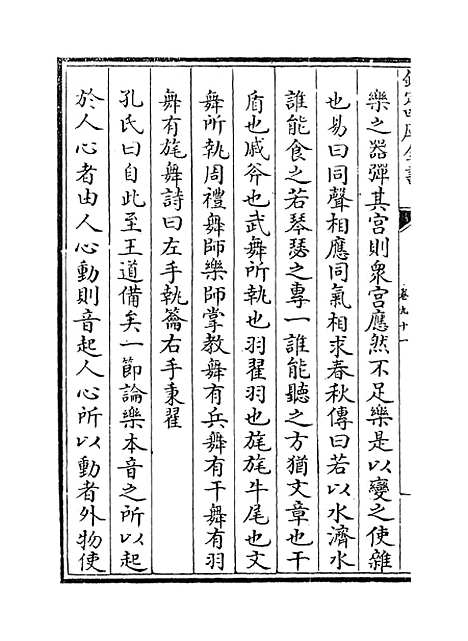 欽定四庫全書
卷九十一
樂之器彈其宮則衆宮應然不足樂是以變之使雜
也易曰同聲相應同氣相求春秋傳曰若以水濟水
誰能食之若琴瑟之專一誰能聽之方猶文章也干
盾也戚斧也武舞所執也羽翟羽也旄旄牛尾也文
舞所執周禮舞師樂師掌教舞有兵舞有干舞有羽
舞有旄舞詩曰左手執籥右手秉翟
孔氏曰自此至王道備矣一節論樂本音之所以起
於人心者由人心動則音起人心所以動者外物使